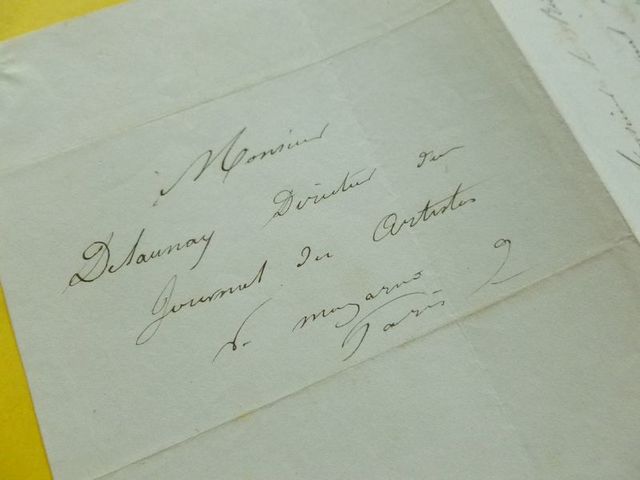 Monsieur
Delaunay Directeur du
Journal des Artistes
r. mazarine 9
Paris